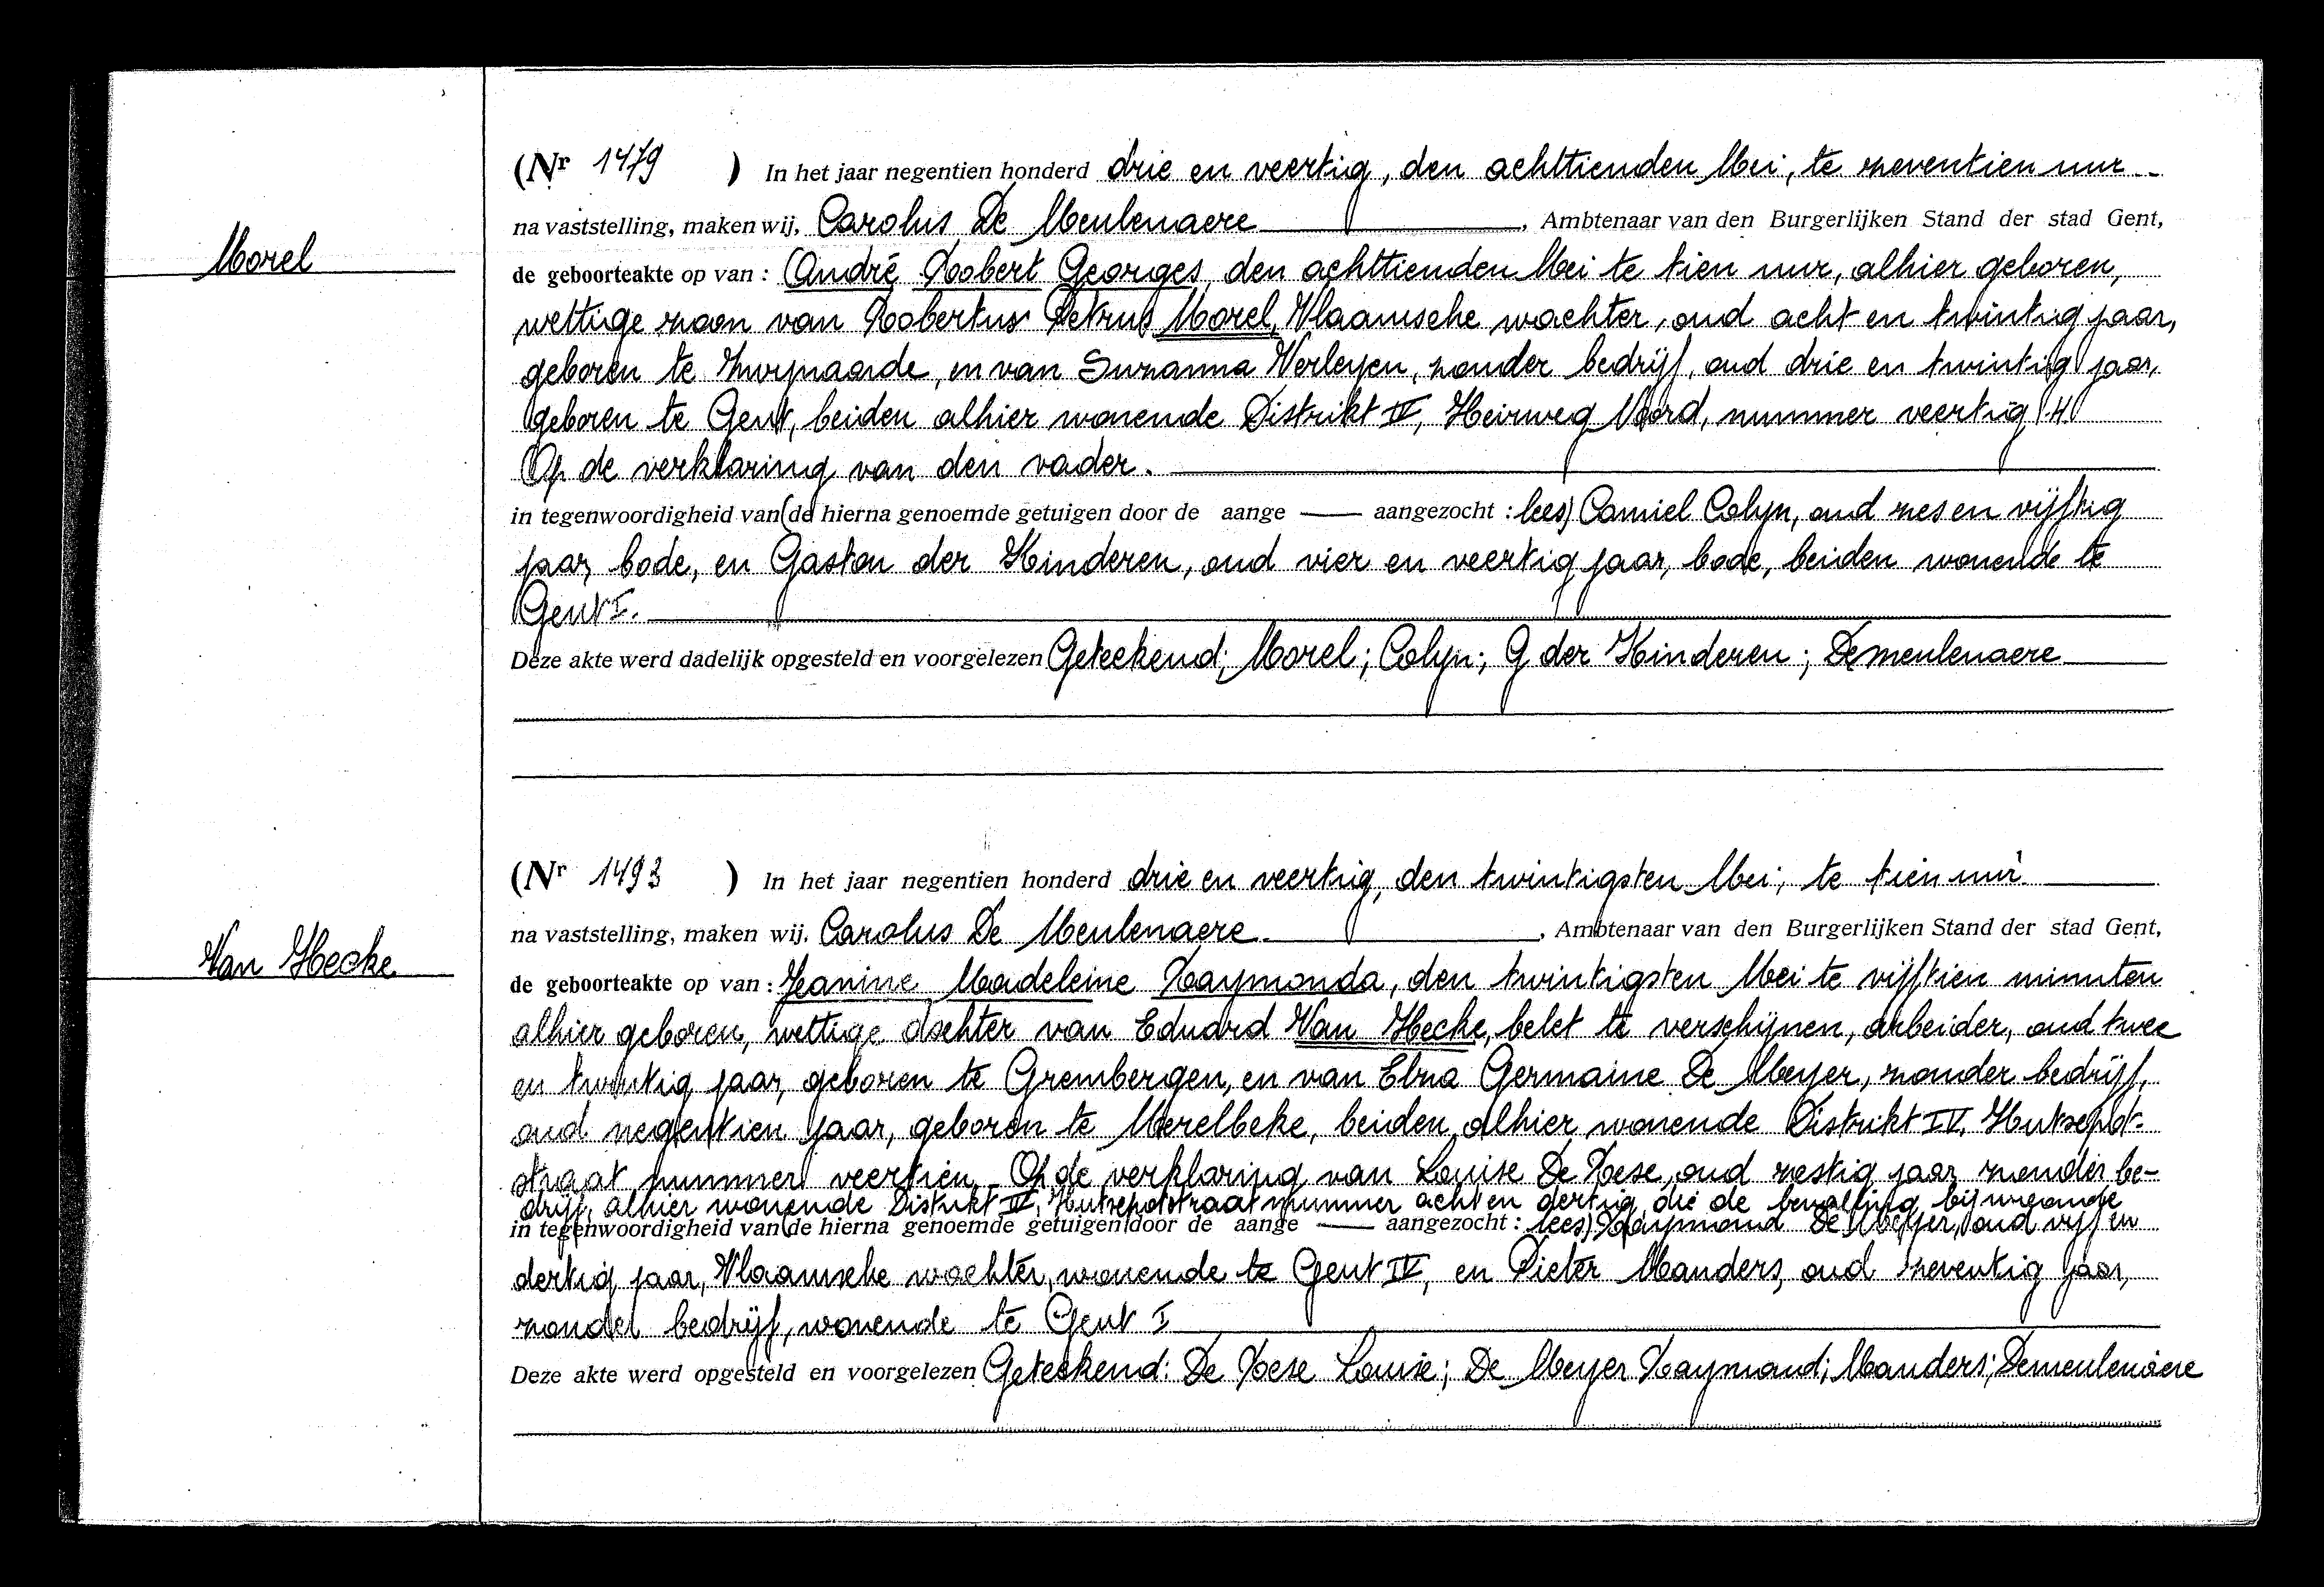 (Nr 1479 ) In het jaar negentien honderd drie en veertig, den achttienden Mei, te zeventien uur
Morel
na vaststelling, maken wij, Carolus De Meulenaere, Ambtenaar van den Burgerlijken Stand der stad Gent,
de geboorteakte op van : André Robert Georges, den achttienden Mei te tien uur, alhier geboren,
wettige zoon van Robertus Petrus Morel, Vlaamsche wachter, oud acht en twintig jaar,
geboren te Zwijnaarde, en van Suzanna Verleyen, zonder bedrijf, oud drie en twintig jaar,
geboren te Gent, beiden alhier wonende Distrikt IV, Heirweg Noord, nummer veertig
Op de verklaring van den vader.
in tegenwoordigheid van (de hierna genoemde getuigen door de aange — aangezocht : lees) Camiel Colyn, oud zes en vijftig
jaar, bode, en Gaston der Kinderen, oud vier en veertig jaar, bode, beiden wonende te
Gent I.
Deze akte werd dadelijk opgesteld en voorgelezen Geteekend; Morel; Colyn; G der Kinderen; Demeulenaere
(Nr 1493 ) In het jaar negentien honderd drie en veertig, den twintigsten Mei, te tien uur.
Van Hecke
na vaststelling, maken wij. Carolus De Meulenaere, Ambtenaar van den Burgerlijken Stand der stad Gent,
de geboorteakte op van : Jeanine Madeleine Raymonda, den twintigsten Mei te vijftien minuten
alhier geboren, wettige dochter van Eduard Van Hecke, belet te verschijnen, arbeider, oud twee
en twintig jaar, geboren te Grembergen, en van Elna Germaine De Meyer, zonder bedrijf,
oud negentien jaar, geboren te Merelbeke, beiden alhier wonende Distrikt IV, Hutsepot-
straat nummer veertien. Op de verklaring van Louise De Rese, oud zestig jaar zonder be-
drijf, alhier wonende Distrikt IV, Hutsepotstraat nummer acht en dertig, die de bevalling bijwoonde
in tegenwoordigheid van (de hierna genoemde getuigen door de aange — aangezocht : lees) Raymond De Meyer, oud vijf en
dertig jaar, Vlaamsche wachter, wonende te Gent IV, en Pieter Manders, oud zeventig jaar,
zonder bedrijf, wonende te Gent I
Deze akte werd opgesteld en voorgelezen Geteekend: De Rese Louise; De Meyer Raymond; Manders; Demeulenaere